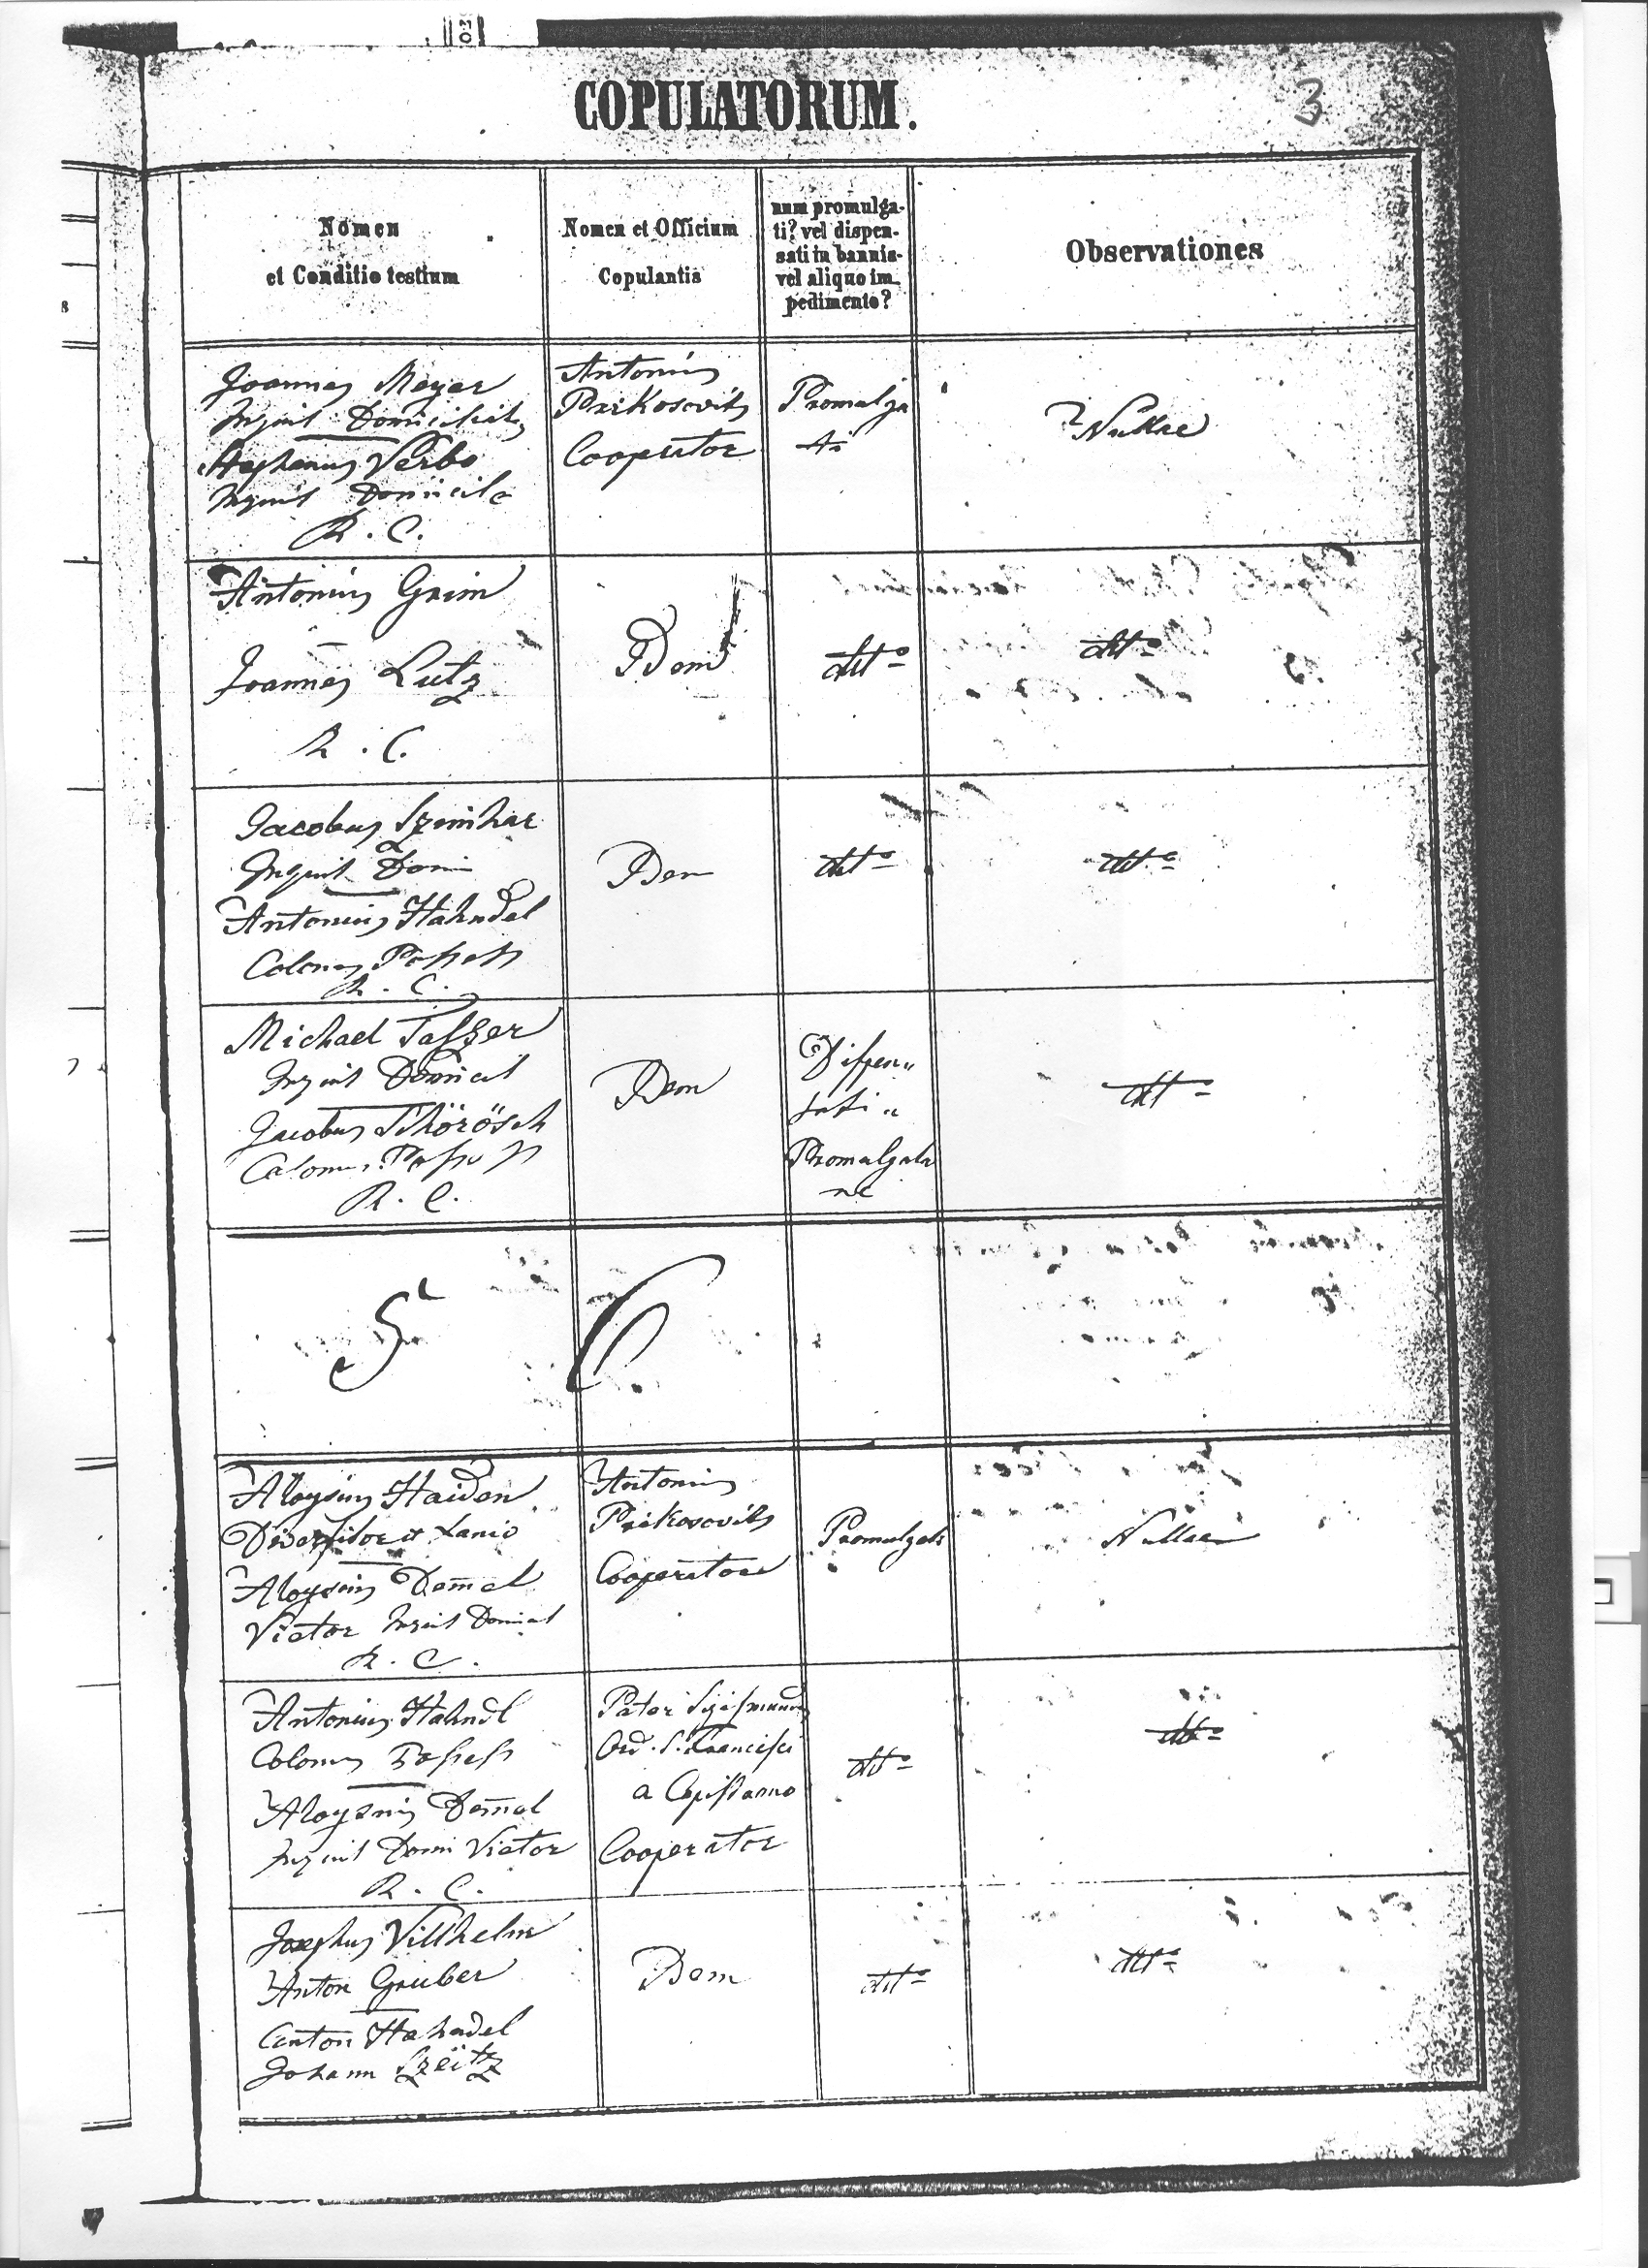 COPULATORUM.
3
Nomen
et Conditio testium
Nomen et Officium
Copulantis
num promulga-
ti? vel dispen-
sati in bannis-
vel aliquo im-
pedimento?
Observationes
Joannes Mayer
Inquil Domiciliat
Stephanus Verbo
Inquil Domicil
R. C.
Antonius
Prikosovits
Cooperator
Promulga
ti
Nullae
Antonius Grim
Joannes Lutz
R. C.
Idem
dtto
dtto
Jacobus Szemhar
Inquil Domi
Antonius Hahndel
Colonus Possess
R. C.
Idem
dtto
dtto
Michael Taszer
Inquil Domicil
Jacobus Thörösch
Colonus Possess
R. C.
Idem
Dispen„
sati „
Promulgatio
ne
dtto
Aloysius Haiden
Diversitor et Lanio
Aloysius Dem̄el
Viator Inquil Domicil
R. C.
Antonius
Prikosovits
Cooperator
Promulgati
Nullae
Antonius Hahndl
Colonus Possess
Aloysius Dem̄el
Inquil Domi Viator
R. C.
Pater Sigismundus
Ord. S. Francisci
a Capistrano
Cooperator
dtto
dtto
Josephus Villhelm
Anton Gruber
Anton Hahndel
Johann Szeitz
Idem
dtto
dtto